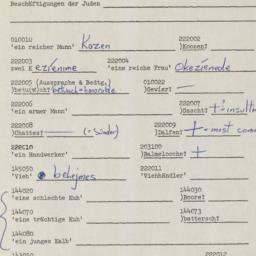 Beschäftigungen der Juden
010010 222002
'ein reicher Mann' Kozen )Koozen!
222003 222004
zwei Kezienime 'eine reiche Frau' Okezienede
222005 (Aussprache & Bedtg.) 010022
)betu(m)cht? betuch=honorable )Gewier! —
222006 222007
'ein armer Mann' )Gascht! + insultin
222008 222009
)Chattes! — (= Sünder) )Dalfen! + most comm
222010 203100
'ein Handwerker' )Balmelooche! +
145050 222011
'Vieh' behejmes 'Viehhändler'
144020 144030
'eine schlechte Kuh' )Boore!
144070 144073
'eine trächtige Kuh' )battersch!
144080
'ein junges Kalb'
222012